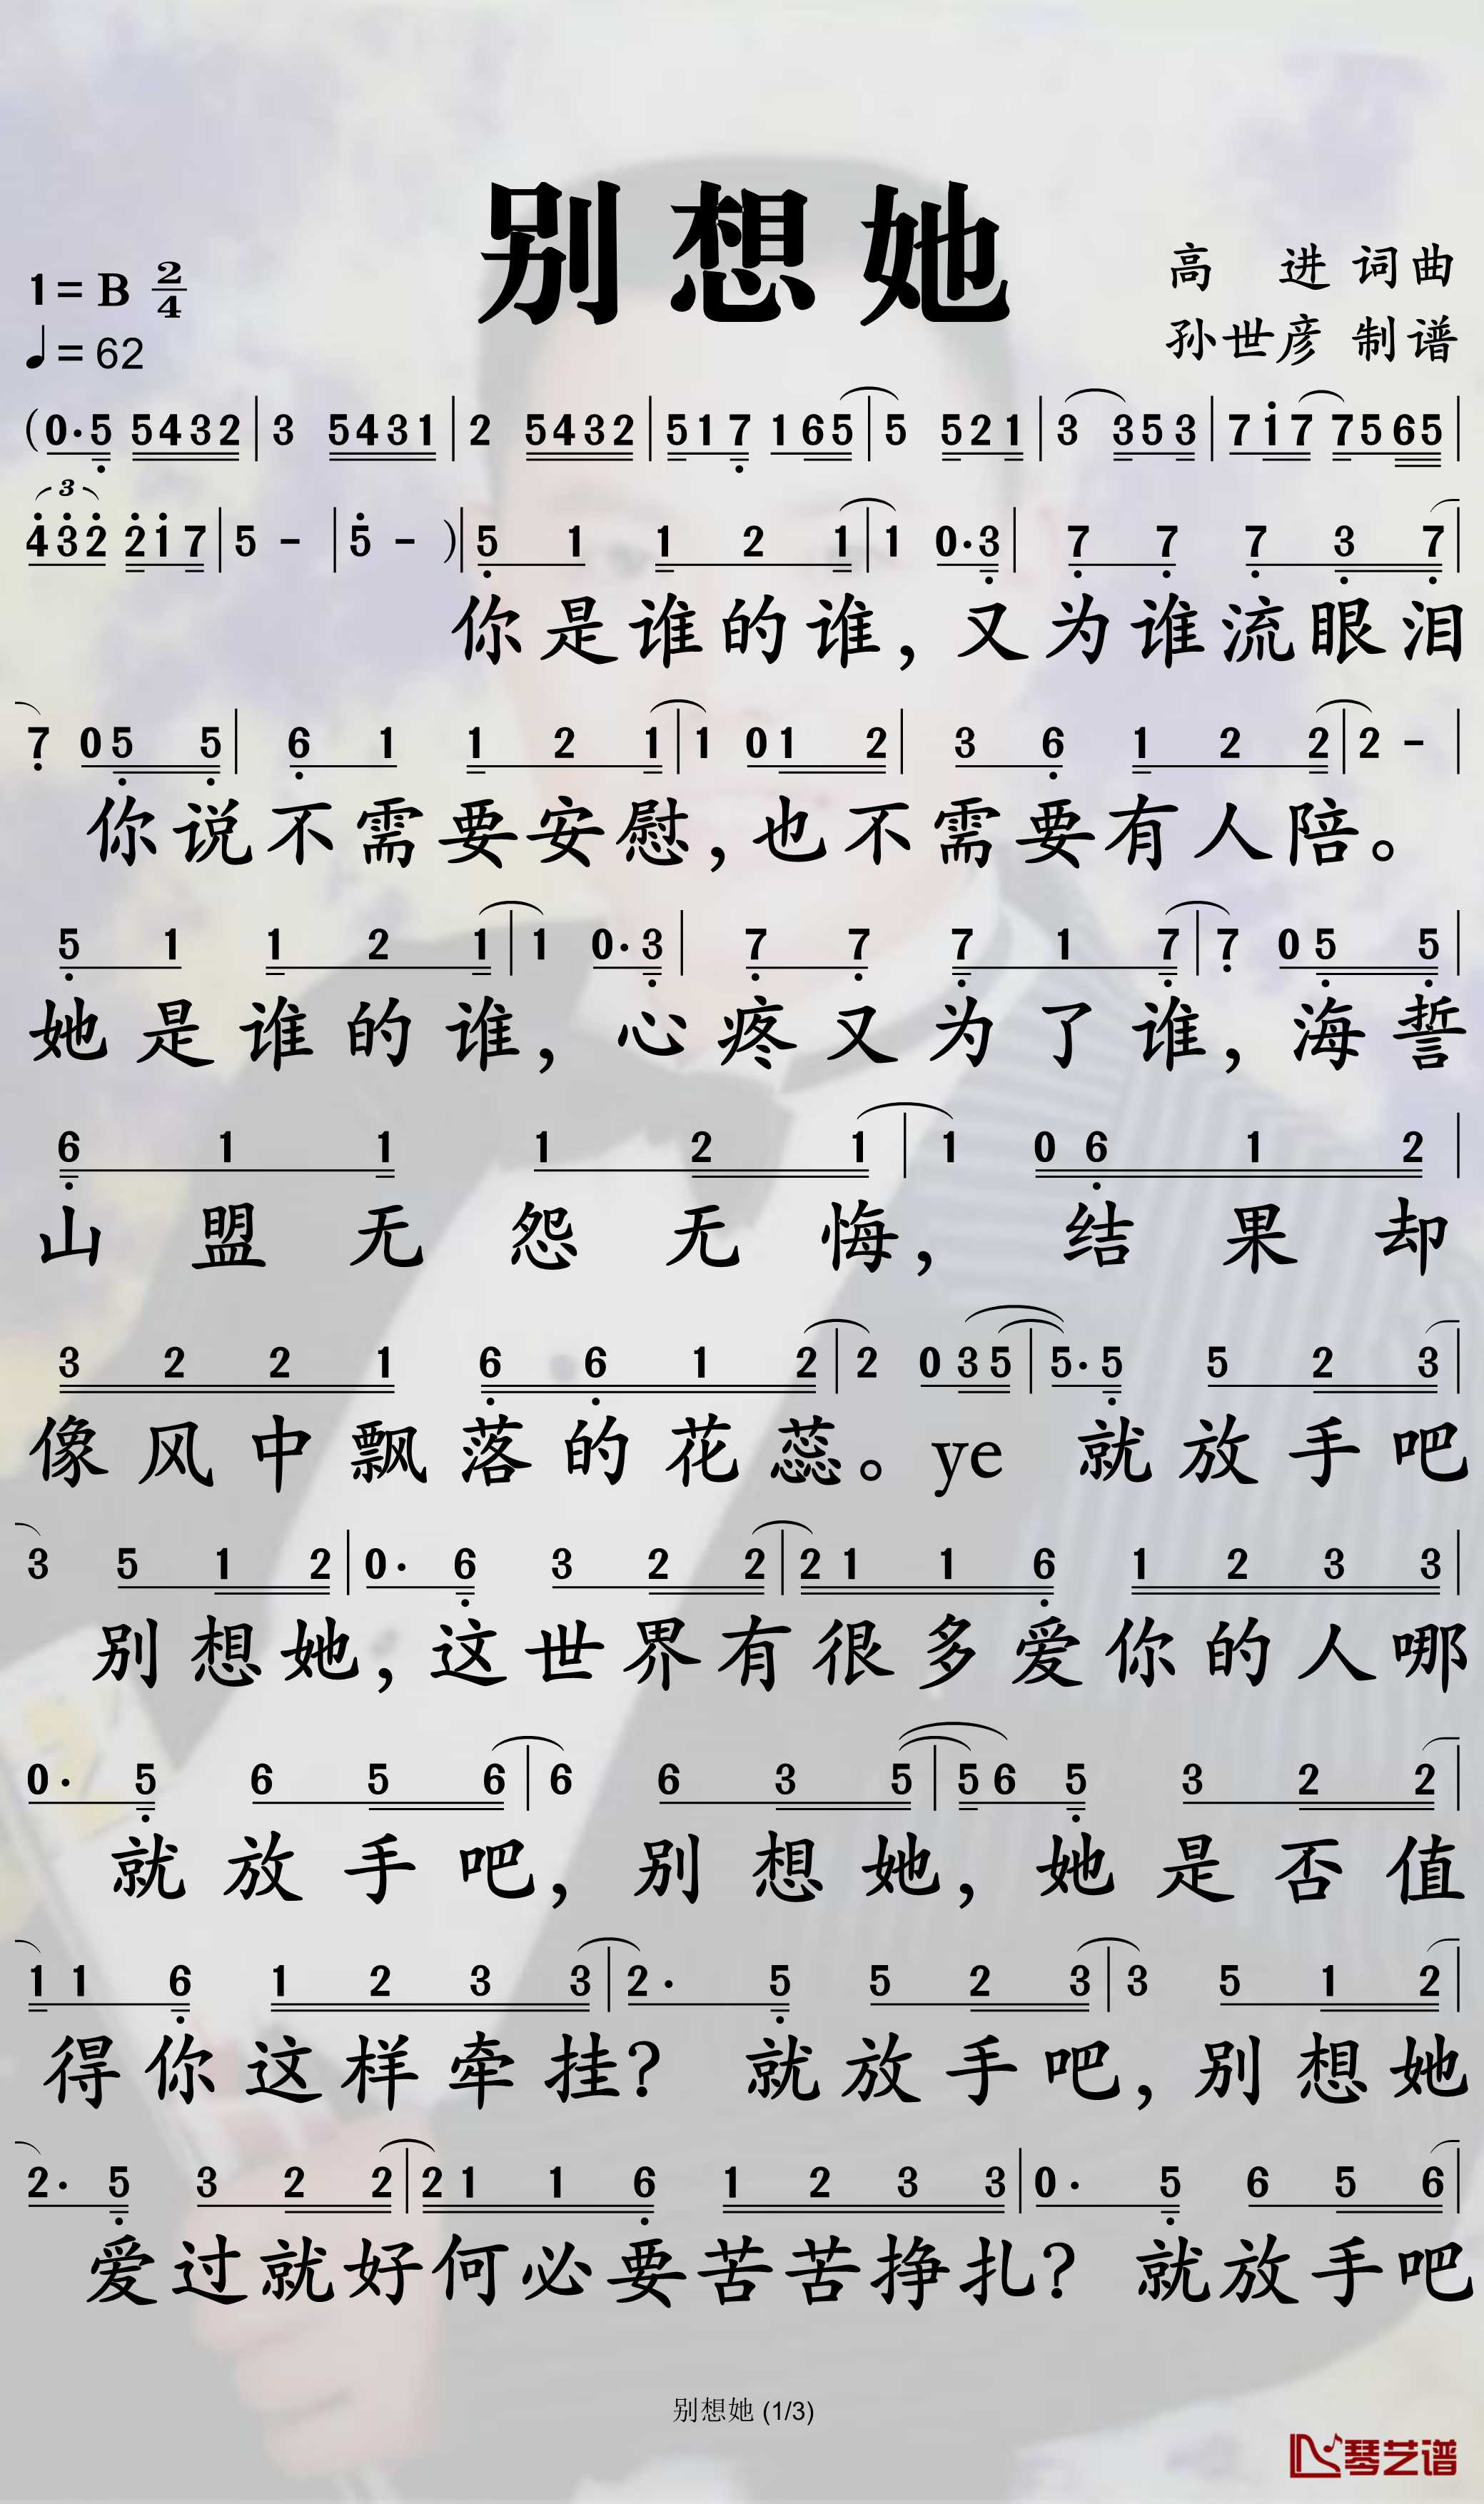 别想她
1=B 2/4
高 进 词曲
♩=62
孙世彦 制谱
(0·5 5432|3 5431|2 5432|517 165|5 521|3 353|717 7565|
3
432 217|5 -|5 -)|5 1 1 2 1|1 0·3|7 7 7 3 7|
你是谁的谁,又为谁流眼泪
7 05 5|6 1 1 2 1|1 01 2|3 6 1 2 2|2 -|
你说不需要安慰,也不需要有人陪。
5 1 1 2 1|1 0·3|7 7 7 1 7|7 05 5|
她是谁的谁,心疼又为了谁,海誓
6 1 1 1 2 1|1 06 1 2|
山盟无怨无悔,结果却
3 2 2 1 6 6 1 2|2 035|5·5 5 2 3|
像风中飘落的花蕊。ye 就放手吧
3 5 1 2|0· 6 3 2 2|21 1 6 1 2 3 3|
别想她,这世界有很多爱你的人哪
0· 5 6 5 6|6 6 3 5|56 5 3 2 2|
就放手吧,别想她,她是否值
11 6 1 2 3 3|2· 5 5 2 3|3 5 1 2|
得你这样牵挂? 就放手吧,别想她
2· 5 3 2 2|21 1 6 1 2 3 3|0· 5 6 5 6|
爱过就好何必要苦苦挣扎? 就放手吧
别想她 (1/3)
琴艺谱